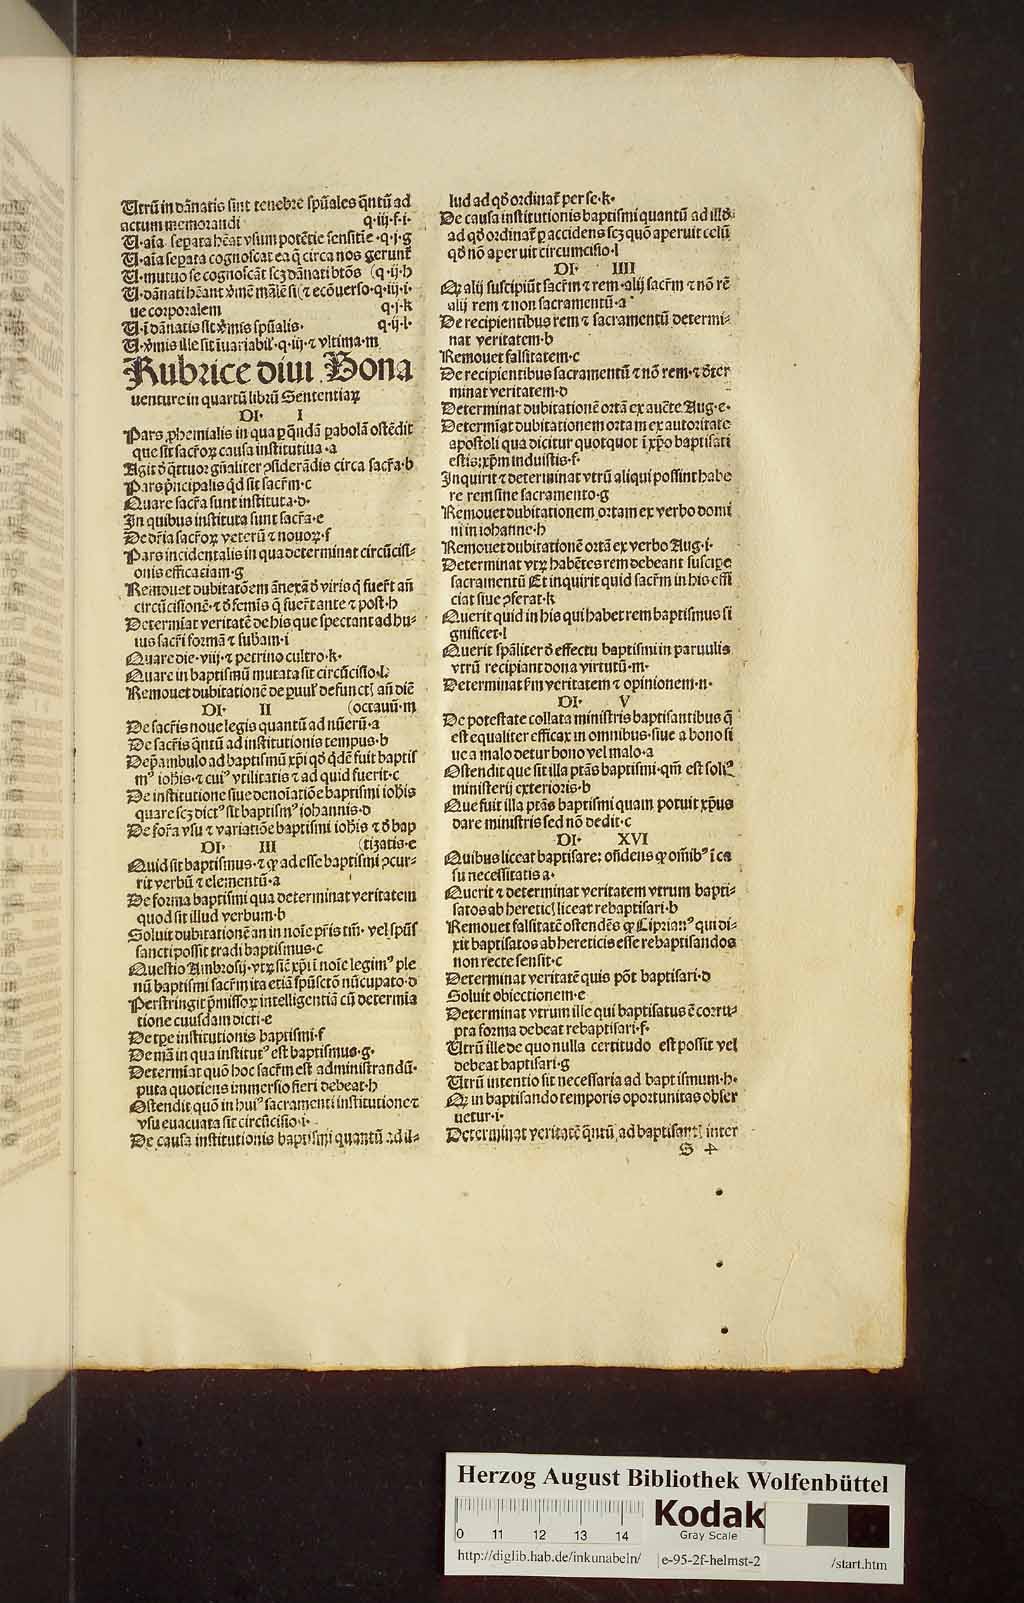 Utrũ in dãnatis sint tenebre spũales q̃ntũ ad
actum memorandi q·iij·f·i·
U·aĩa sepata hẽat vsum potẽtie sensitie·q·j·g
U·aĩa sepata cognoscat ea q̃ circa nos gerunt̃
U·mutuo se cognoscãt scz dãnati btõs (q·ij·h
U·dãnati hẽant
ue corporalem q·j·k
U·ĩ dãnatis sit ṽmis spũalis· q·ij·l·
U·ṽmis ille sit ĩuariabil'·q·iij·⁊ vltima·m
Rubrice diui Bona
uenture in quartũ librũ Sententiaꝝ
DI· I
Pars ꝓhemialis in qua ꝑ q̃ndã ꝑabolã ostẽdit
que sit sacr̃oꝝ causa institutiua·a
Agit õ q̃ttuor gñaliter ꝯsiderãdis circa sacr̃a·b
Pars pͥncipalis qͥd sit sacr̃m·c
Quare sacr̃a sunt instituta·d·
In quibus instituta sunt sacr̃a·e
De dr̃ia sacr̃oꝝ veterũ ⁊ nouoꝝ·f
Pars incidentalis in qua determinat circũcisi⸗
onis efficaciam·g
Remouet dubitatõem ãnexã õ viris q̃ fuer̃t añ
circũcisionẽ·⁊ õ femis q̃ fuer̃t ante ⁊ post·h
Determĩat veritatẽ de his que spectant ad hu⸗
ius sacr̃i formã ⁊ subam·i
Quare die·viij·⁊ petrino cultro·k·
Quare in baptismũ mutata sit circũcisio·l·
Remouet dubitationẽ de ꝑuul' defunctꝭ añ diẽ
DI· II (octauũ·m
De sacr̃is noue legis quantũ ad nũerũ·a
De sacr̃is q̃ntũ ad institutionis tempus·b
De p̃ambulo ad baptismũ xp̃i qd̃ qͥdẽ fuit baptis
mꝰ ioh̃is·⁊ cuiꝰ vtilitatis ⁊ ad quid fuerit·c
De institutione siue denoĩatiõe baptismi ioh̃is
quare scz dictꝰ sit baptismꝰ iohannis·d
De for̃a vsu ⁊ variatiõe baptismi ioh̃is ⁊ õ bap
DI· III (tizatis·e
Quid sit baptismus·⁊ ꝙ ad esse baptismi ꝯcur⸗
rit verbũ ⁊ elementũ·a
De forma baptismi qua determinat veritatem
quod sit illud verbum·b
Soluit dubitationẽ an in noĩe pr̃is tm̃· vel spũs
sancti possit tradi baptismus·c
Questio Ambrosij·vtꝝ siẽ xp̃i ĩ noĩe legimꝰ ple
nũ baptismi sacr̃m ita etiã spũsctõ nũcupato·d
Perstringit p̃missoꝝ intelligentiã cũ determia
tione cuusdam dicti·e
De tp̃e institutionis baptismi·f
De mã in qua institutꝰ est baptismus·g·
Determĩat quõ hoc sacr̃m est administrandũ·
puta quotiens immersio fieri debeat·h
Ostendit quõ in huiꝰ sacramenti institutione ⁊
vsu euacuata sit circũcisio·i·
De causa institutionis baptismi quantũ ad il⸗
lud ad qd̃ ordinat̃ per se·k·
De causa institutionis baptismi quantũ ad illd̃
ad qd̃ ordinat̃ ꝑ accidens scz quõ aperuit celũ
qd̃ nõ aperuit circumcisio·l
DI· IIII
Qꝙ alij suscipiũt sacr̃m ⁊ rem·alij sacr̃m ⁊ nõ rẽ
alij rem ⁊ non sacramentũ·a
De recipientibus rem ⁊ sacramentũ determi⸗
nat veritatem·b
Remouet falsitatem·c
De recipientibus sacramentũ ⁊ nõ rem·⁊ d̃ter
minat veritatem·d
Determinat dubitationẽ ortã ex auc̃te Aug·e·
Determĩat dubitationem ortam ex autoritate
apostoli qua dicitur quotquot ĩ xp̃o baptisati
estis: xp̃m induistis·f·
Inquirit ⁊ determinat vtrũ aliqui possint habe
re rem sine sacramento·g
Remouet dubitationem ortam ex verbo domi
ni in iohanne·h
Remouet dubitationẽ ortã ex verbo Aug·i·
Determinat vtꝝ habẽtes rem debeant suscipe
sacramentũ Et inquirit quid sacr̃m in his effi
ciat siue ꝯferat·k
Querit quid in his qui habet rem baptismus si
gnificet·l
Querit spãliter õ effectu baptismi in paruulis
vtrũ recipiant dona virtutũ·m·
Determinat fm̃ veritatem ⁊ opinionem·n·
DI· V
De potestate collata ministris baptisantibus q̃
est equaliter efficax in omnibus·siue a bono si
ue a malo detur bono vel malo·a
Ostendit que sit illa ptãs baptismi·qm̃ est soliꝰ
ministerij exterioris·b
Que fuit illa ptãs baptismi quam potuit xp̃us
dare ministris sed nõ dedit·c
DI· XVI
Quibus liceat baptisare: oñdens ꝙ om̃ibꝰ ĩ ca
su necessitatis a·
Querit ⁊ determinat veritatem vtrum bapti⸗
satos ab hereticꝭ liceat rebaptisari·b
Remouet falsitatẽ ostendẽs ꝙ Ciprianꝰ qui di⸗
xit baptisatos ab hereticis esse rebaptisandos
non recte sensit·c
Determinat veritatẽ quis põt baptisari·d
Soluit obiectionem·e
Determinat vtrum ille qui baptisatus ẽ corru⸗
pta forma debeat rebaptisari·f·
Utrũ ille de quo nulla certitudo est possit vel
debeat baptisari·g
Utrũ intentio sit necessaria ad baptismum·h·
Qꝙ in baptisando temporis oportunitas obser
uetur·i·
Determinat veritatẽ q̃ntũ ad baptisantꝭ inter
S 4
Herzog August Bibliothek Wolfenbüttel
0 11 12 13 14
Kodak
Gray Scale
http://diglib.hab.de/inkunabeln/ e-95-2f-helmst-2 /start.htm